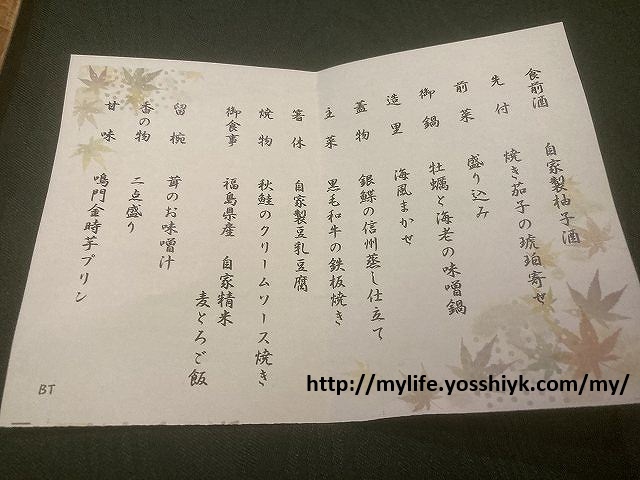 食前酒 自家製柚子酒
先付 焼き茄子の琥珀寄せ
前菜 盛り込み
御鍋 牡蠣と海老の味噌鍋
造里 海風まかせ
蓋物 銀鰈の信州蒸し仕立て
主菜 黒毛和牛の鉄板焼き
箸休 自家製豆乳豆腐
焼物 秋鮭のクリームソース焼き
御食事 福島県産 自家精米
麦とろご飯
留椀 茸のお味噌汁
香の物 二点盛り
甘味 鳴門金時芋プリン
BT
http://mylife.yosshiyk.com/my/